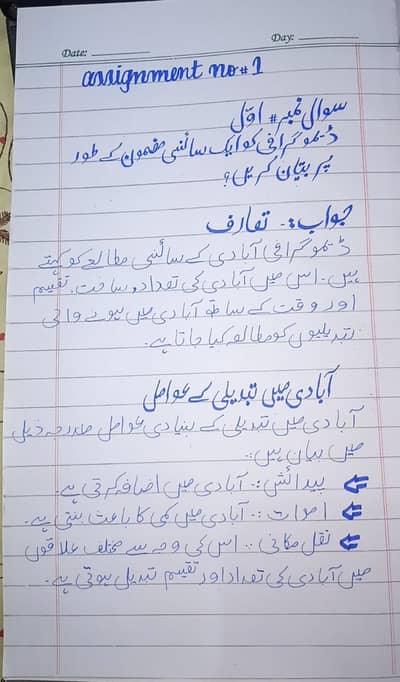 Date: Day:
assignment no#1
سوال نمبر# اوّل
ڈیموگرافی کو ایک سائنسی مضمون کے طور
پر بیان کریں؟
جواب:۔ تعارف
ڈیموگرافی آبادی کے سائنسی مطالعے کو کہتے
ہیں۔ اس میں آبادی کی تعداد، ساخت، تقسیم
اور وقت کے ساتھ آبادی میں ہونے والی
تبدیلیوں کو مطالعہ کیا جاتا ہے۔
آبادی میں تبدیلی کے عوامل
آبادی میں تبدیلی کے بنیادی عوامل مندرجہ ذیل
میں بیان ہیں:۔
پیدائش:۔ آبادی میں اضافہ کرتی ہے۔
اموات:۔ آبادی میں کمی کا باعث بنتی ہے۔
نقل مکانی:۔ اس کی وجہ سے مختلف علاقوں
میں آبادی کی تعداد اور تقسیم تبدیل ہوتی ہے۔